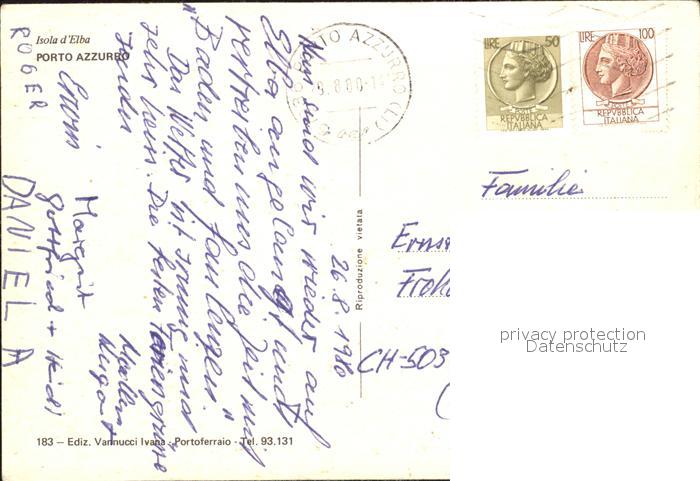 Isola d'Elba
PORTO AZZURRO
26.8.1980
Nun sind wir wieder auf
Elba angelangt und
vertreiben uns die Zeit mit
"Baden und faulenzen".
Das Wetter ist sonnig und
sehr warm. Die besten Feriengrüsse
senden
Erwin
Margrit
Gottfried + Heidi
ROGER
DANIELA
183 — Ediz. Vannucci Ivana - Portoferraio - Tel. 93.131
Riproduzione vietata
PORTO AZZURRO (LI)
LIRE 50
REPVBBLICA
ITALIANA
LIRE 100
REPVBBLICA
ITALIANA
Familie
CH-503
privacy protection
Datenschutz